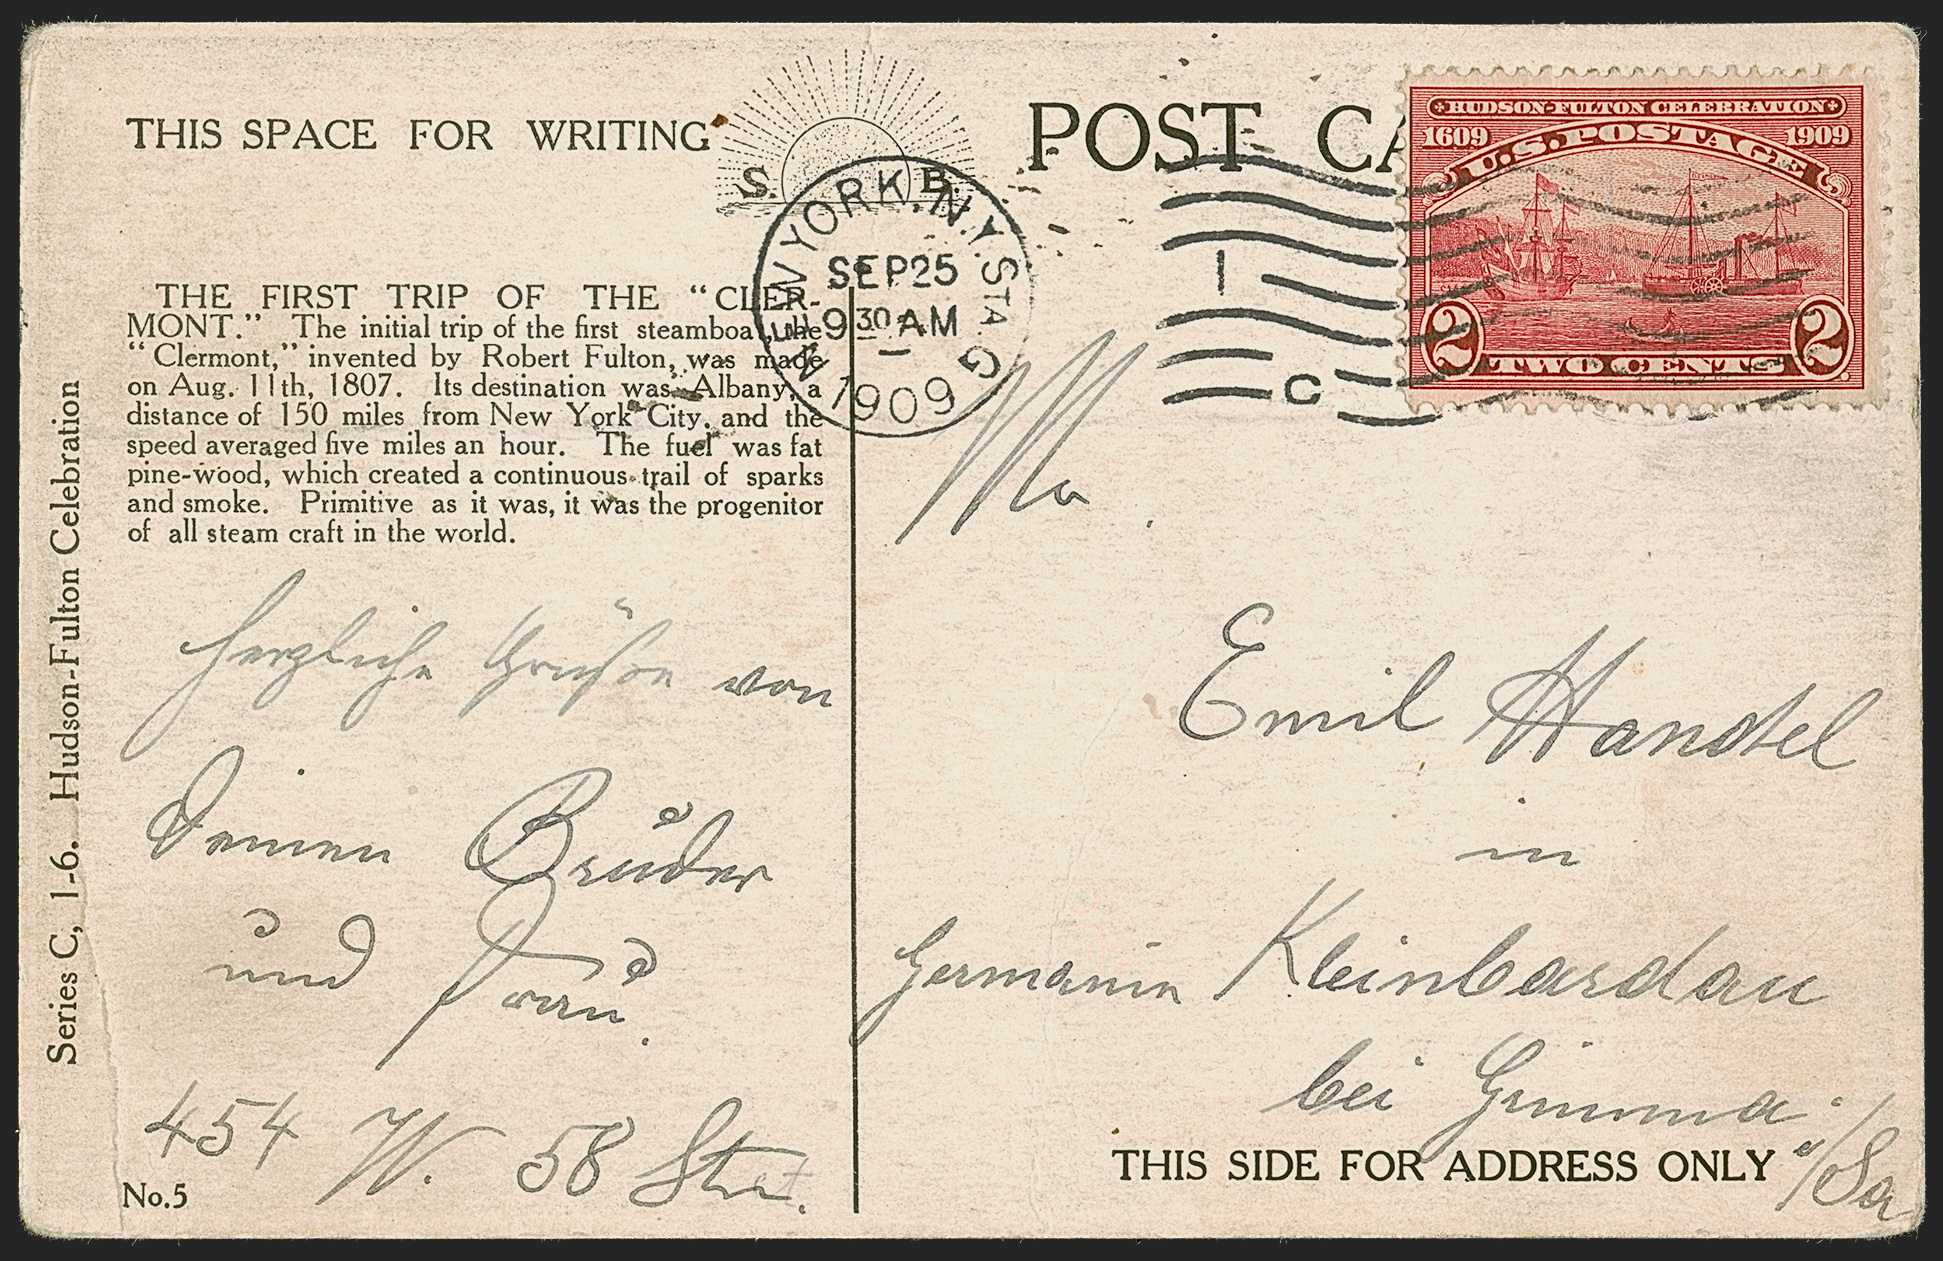 THIS SPACE FOR WRITING
S. B.
POST CA
HUDSON-FULTON CELEBRATION
1609 1909
U.S. POSTAGE
2 TWO CENTS 2
NEW YORK, N.Y. STA. G
SEP 25
9 30 AM
1909
1
C
THE FIRST TRIP OF THE "CLER-
MONT." The initial trip of the first steamboat, the
"Clermont," invented by Robert Fulton, was made
on Aug. 11th, 1807. Its destination was Albany, a
distance of 150 miles from New York City, and the
speed averaged five miles an hour. The fuel was fat
pine-wood, which created a continuous trail of sparks
and smoke. Primitive as it was, it was the progenitor
of all steam craft in the world.
Series C, 1-6. Hudson-Fulton Celebration
Herzliche Grüße von
Deinen Bruder
und Frau.
454 W. 58 Street.
No.5
Emil Handel
in
Germanin Kleinbardau
bei Grimma
i/Sa
THIS SIDE FOR ADDRESS ONLY